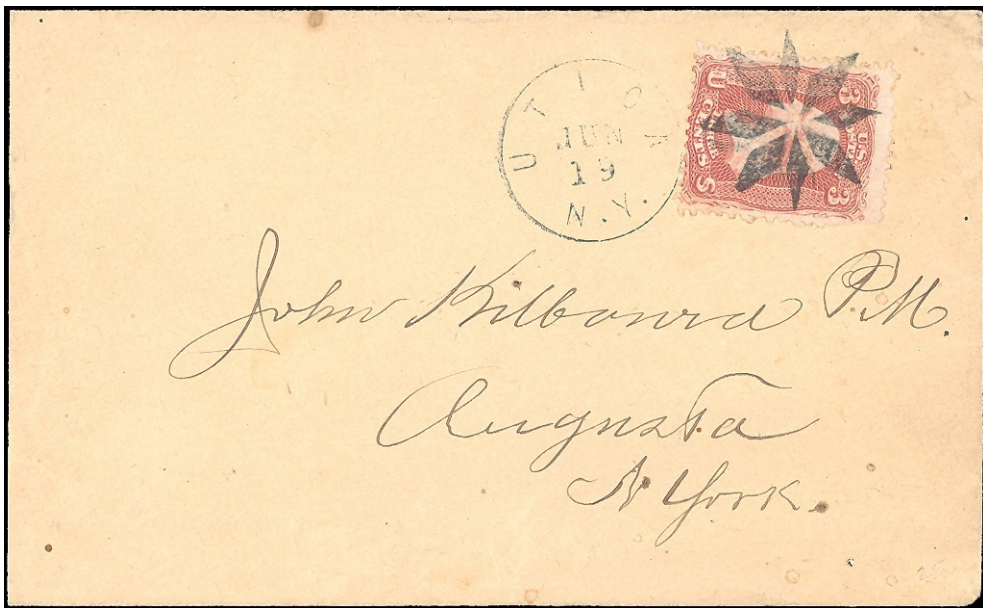 UTICA
JUN
19
N.Y.
3 U.S. 3
CENTS
John Kilbourn P.M.
Augusta
N York.